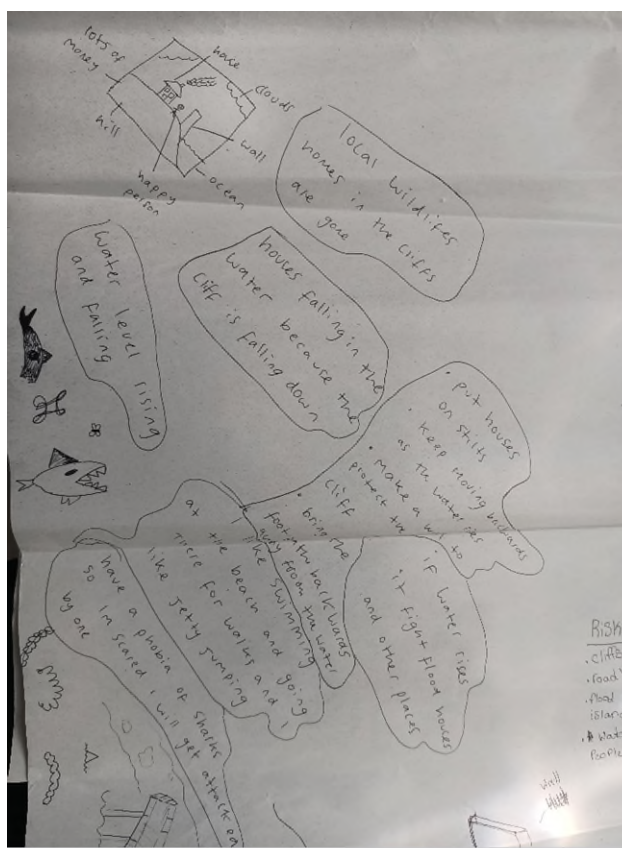 lots of
money
hill
house
clouds
wall
ocean
happy
person
local wildlifes
homes in the cliffs
are gone
houses falling in the
water because the
cliff is falling down
water level rising
and falling
• put houses
on stilts
• keep moving backwards
as the water rises
• make a wall to
protect the
cliff
• bring the
footpath backwards
away from the water
if water rises
it fight flood houses
and other places
I like swimming
at the beach and going
there for walks and I
like jetty jumping
have a phobia of sharks
so Im scared I will get attacked
by one
Risk
• cliffs
• road
• flood
island
people
wall